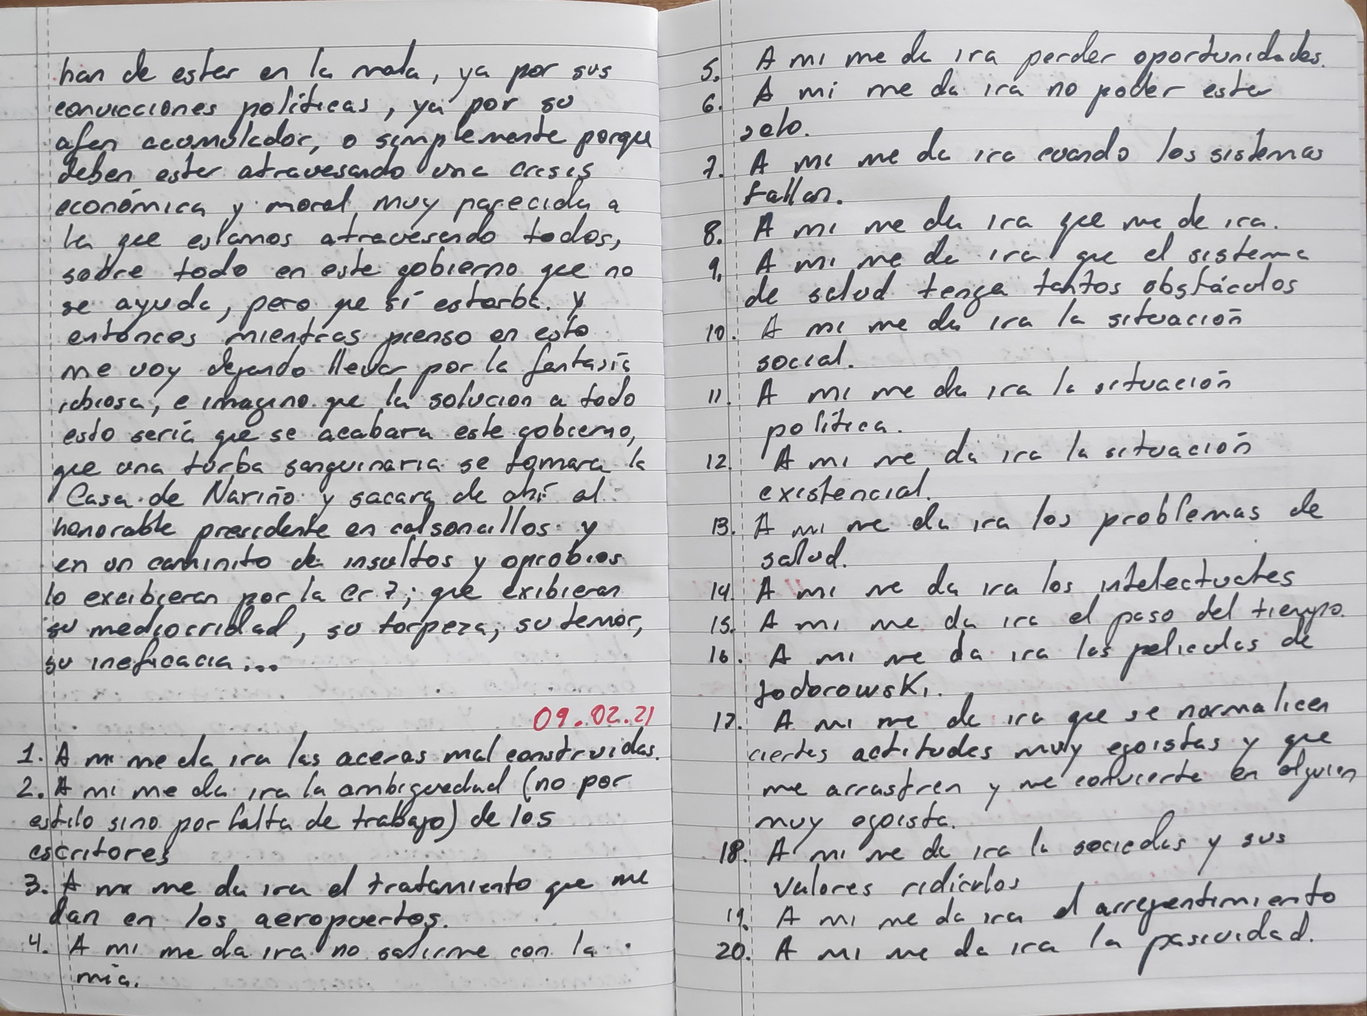 han de estar en la mala, ya por sus
convicciones políticas, ya por su
afan acumulador, o simplemente porque
deben estar atravesando una crisis
económica y moral muy parecida a
la que estamos atravesando todos,
sobre todo en este gobierno que no
se ayuda, pero que sí estorba. y
entonces mientras pienso en esto
me voy dejando llevar por la fantasía
rabiosa, e imagino que la solucion a todo
esto sería que se acabara este gobierno,
que una turba sanguinaria se tomara la
Casa de Nariño y sacara de ahí al
honorable presidente en calsonsillos y
en un caminito de insultos y oprobios
lo exibieran por la cr 7; que exibieran
su mediocridad, su torpeza, su temor,
su ineficacia...
09.02.21
1. A mi me da ira las aceras mal construidas.
2. A mi me da ira la ambiguedad (no por
estilo sino por falta de trabajo) de los
escritores
3. A mi me da ira el tratamiento que me
dan en los aeropuertos.
4. A mi me da ira no salirme con la
mía.
5. A mi me da ira perder oportunidades.
6. A mi me da ira no poder estar
solo.
7. A mi me da ira cuando los sistemas
fallan.
8. A mi me da ira que me de ira.
9. A mi me da ira que el sistema
de salud tenga tantos obstáculos
10. A mi me da ira la situación
social.
11. A mi me da ira la situación
política.
12. A mi me da ira la situación
existencial.
13. A mi me da ira los problemas de
salud.
14. A mi me da ira los intelectuales
15. A mi me da ira el paso del tiempo.
16. A mi me da ira las películas de
Jodorowski.
17. A mi me da ira que se normalicen
ciertas actitudes muy egoistas y que
me arrastren y me convierta en alguien
muy egoista.
18. A mi me da ira la sociedas y sus
valores ridículos
19. A mi me da ira el arrepentimiento
20. A mi me da ira la pasividad.